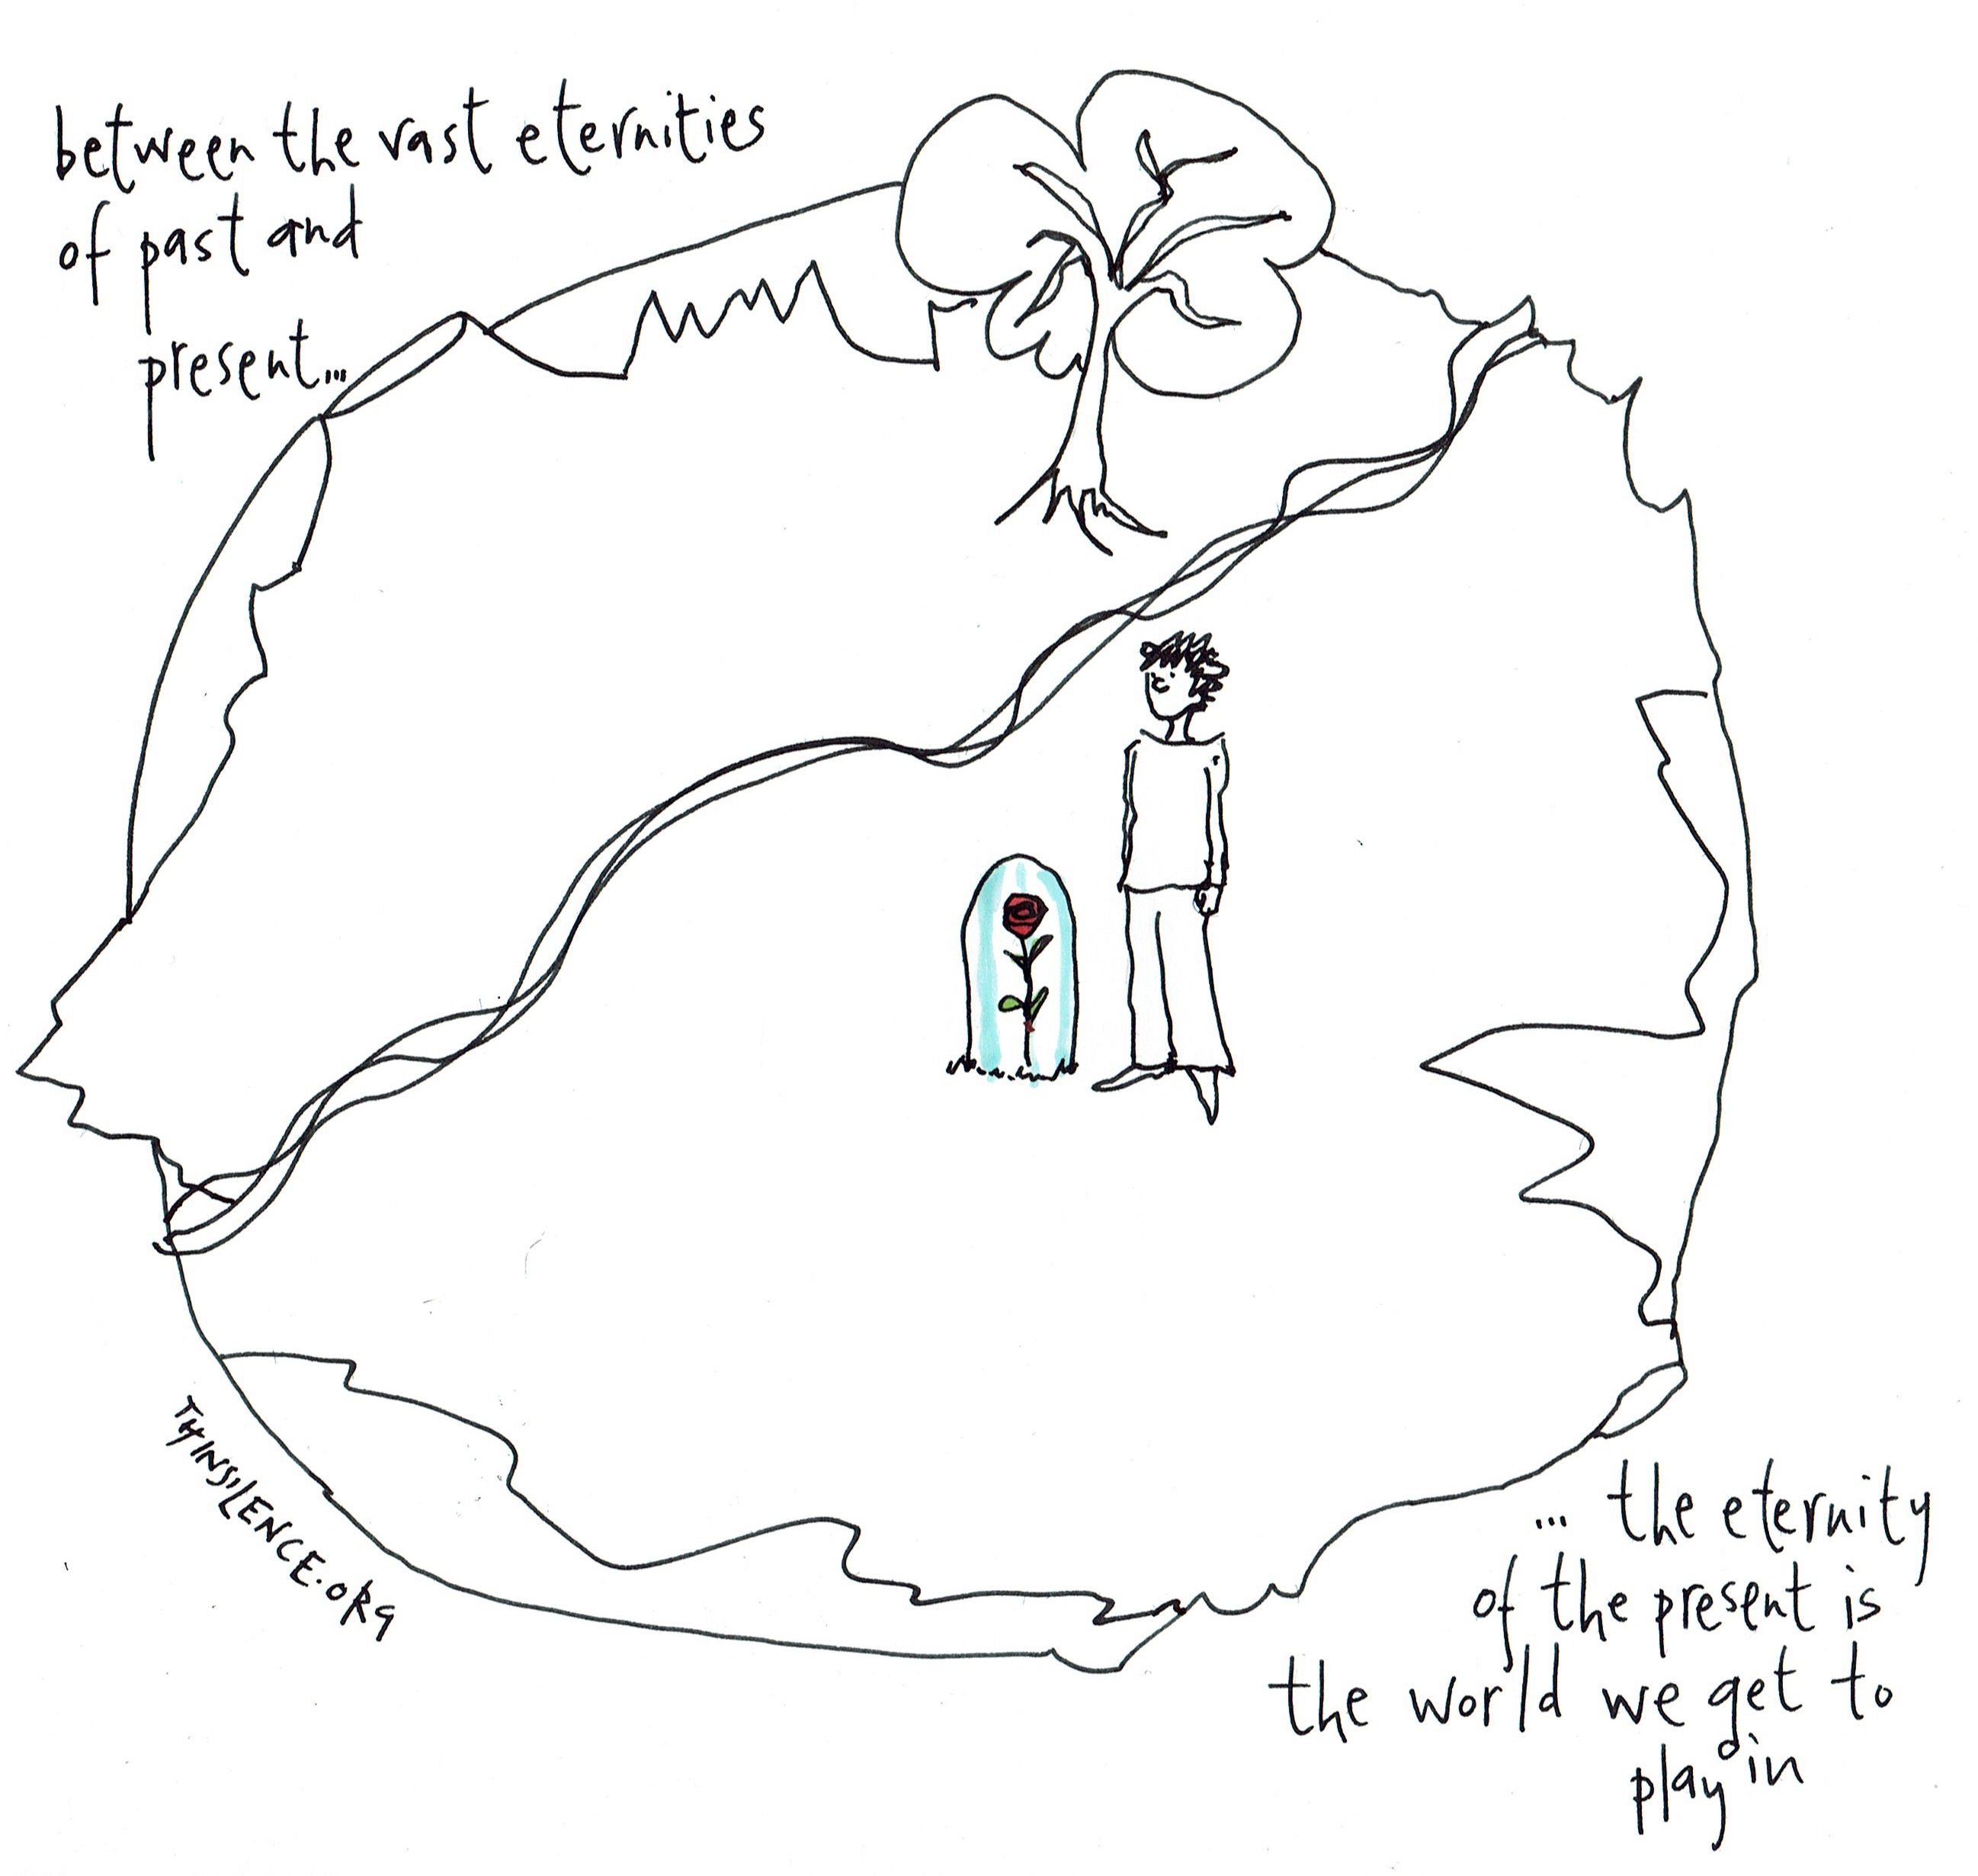 between the vast eternities
of past and
present...
THINSILENCE.ORG
... the eternity
of the present is
the world we get to
play in